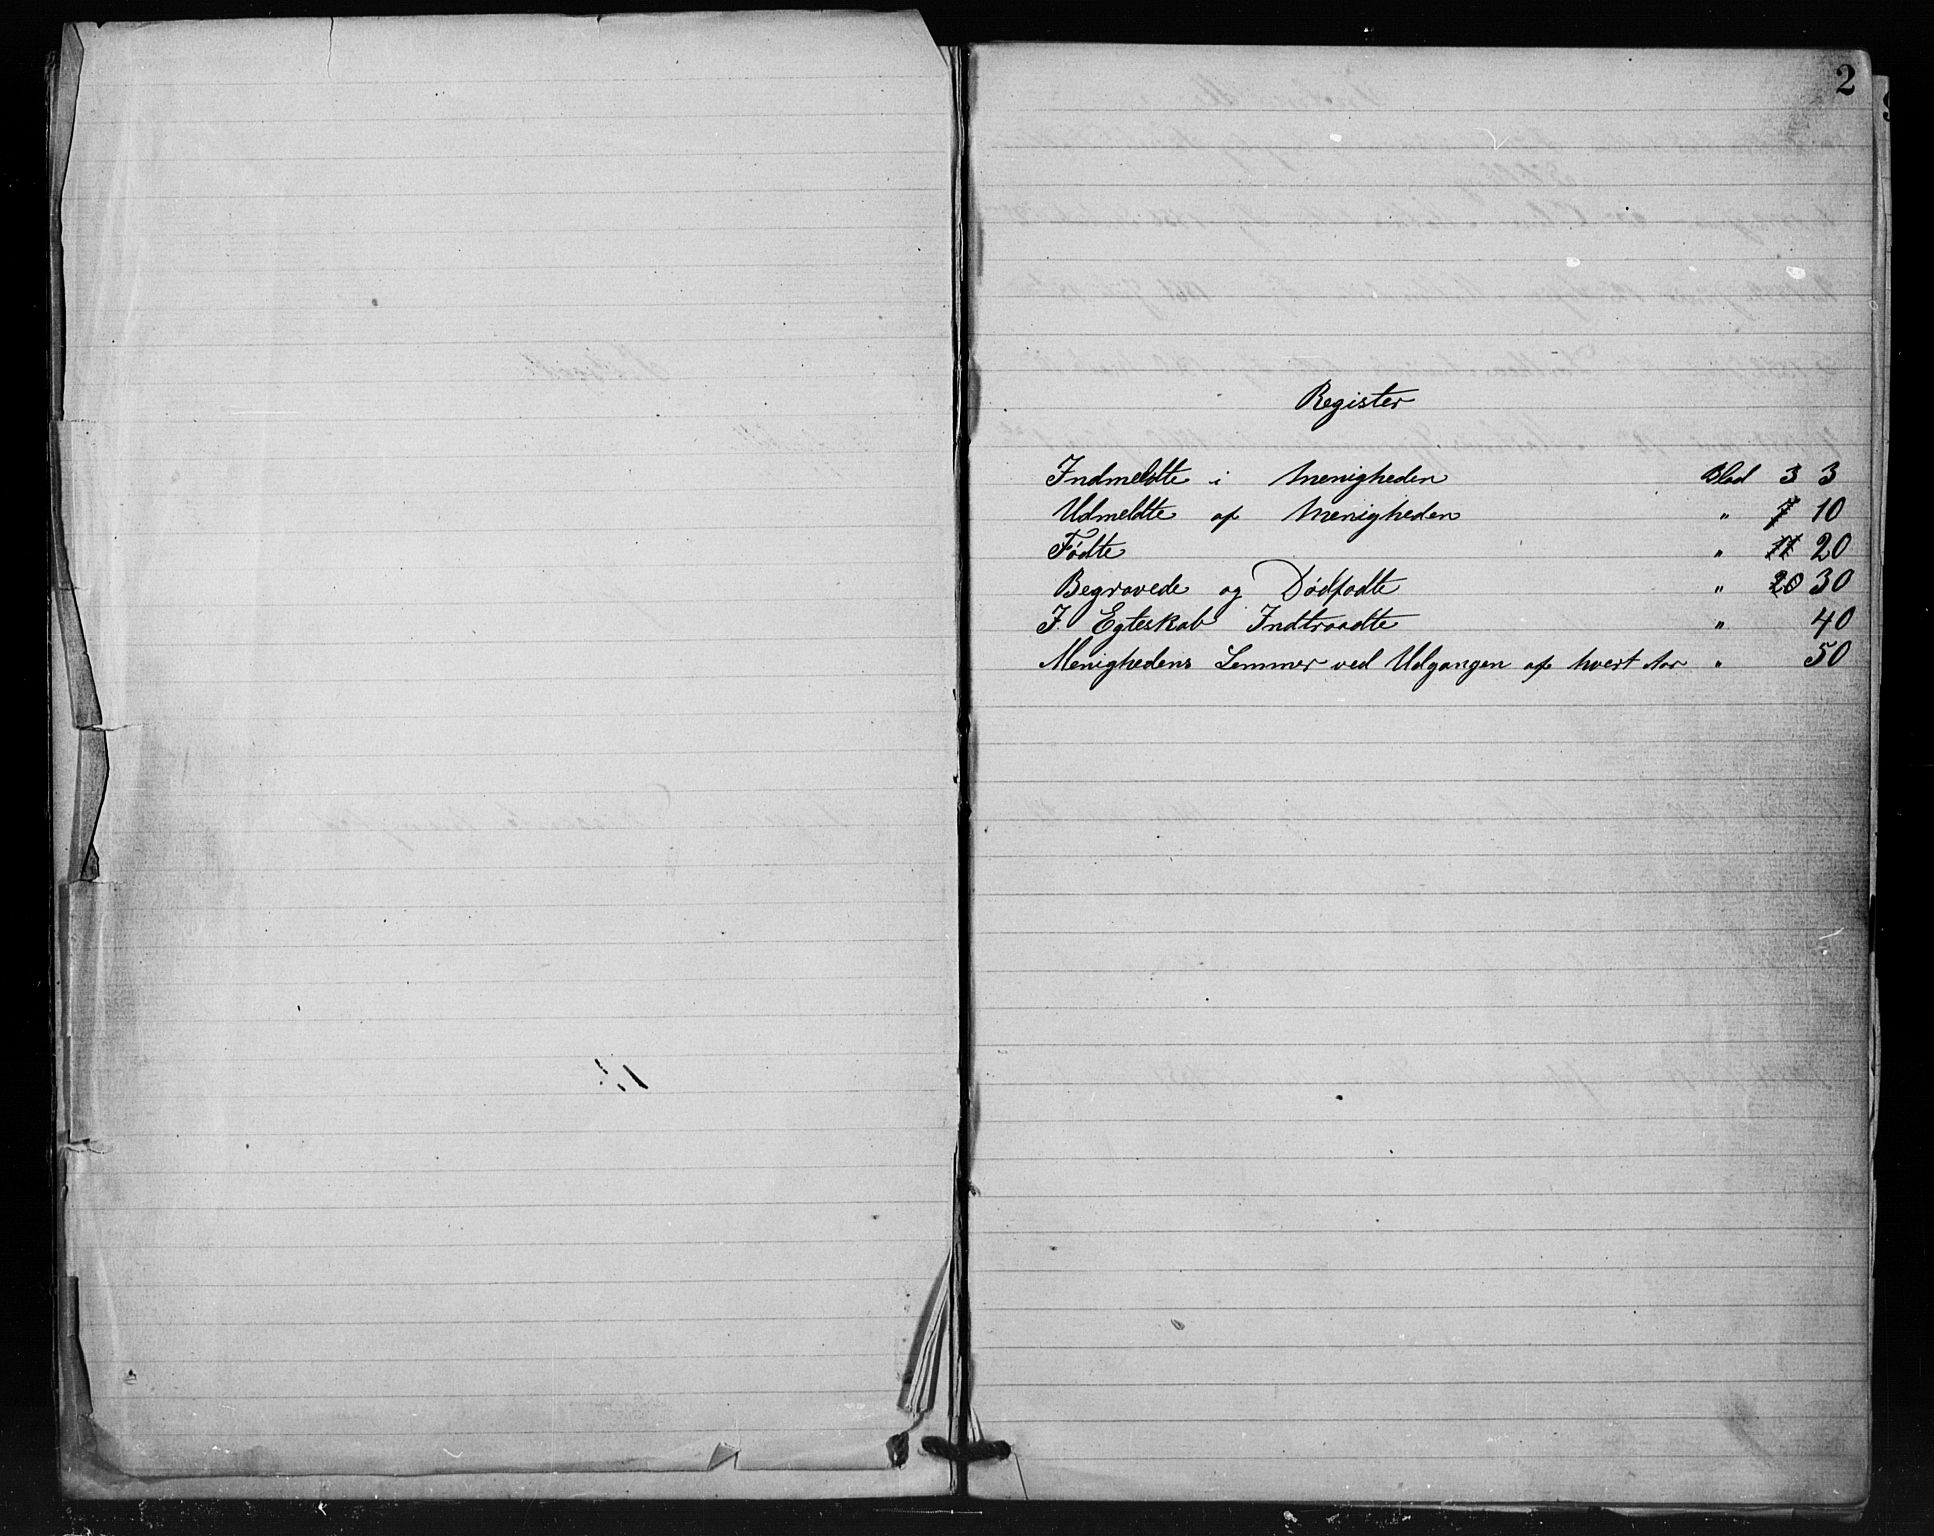 2
Register
Indmeldte i Menigheden Blad 3 3
Udmeldte af Menigheden " 7 10
Fødte " 11 20
Begravede og Dødfødte " 20 30
I Egteskab Indtraadte " 40
Menighedens Lemmer ved Udgangen af hvert Aar " 50